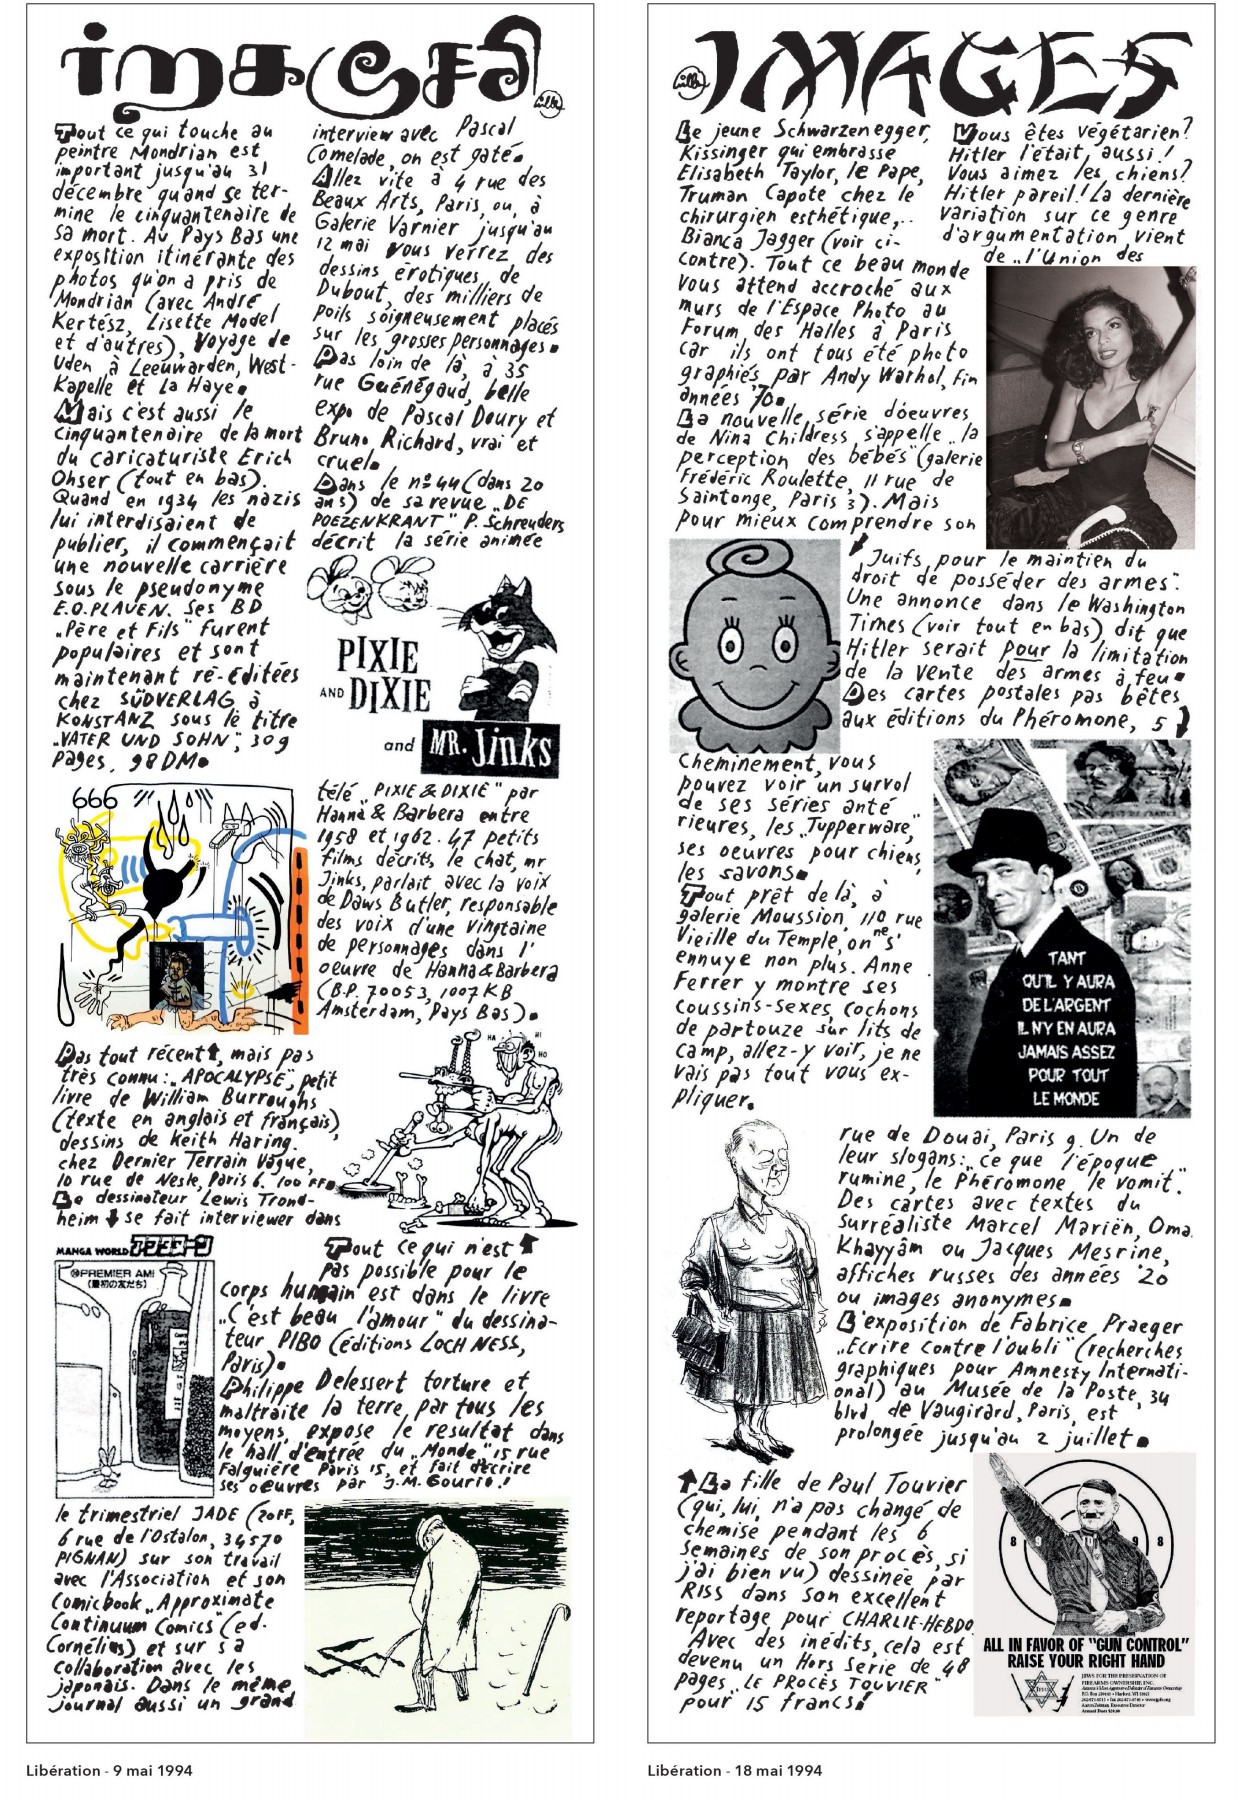 Tout ce qui touche au
peintre Mondrian est
important jusqu'au 31
décembre quand se ter-
mine le cinquantenaire de
sa mort. Au Pays Bas une
exposition itinérante des
photos qu'on a pris de
Mondrian (avec André
Kertész, Lisette Model
et d'autres), voyage de
Uden à Leeuwarden, West-
Kapelle et La Haye.
Mais c'est aussi le
cinquantenaire de la mort
du caricaturiste Erich
Ohser (tout en bas).
Quand en 1934 les nazis
lui interdisaient de
publier, il commençait
une nouvelle carrière
sous le pseudonyme
E.O.PLAUEN. Ses BD
„Père et Fils" furent
populaires et sont
maintenant ré-éditées
chez SÜDVERLAG à
KONSTANZ sous le titre
„VATER UND SOHN", 309
pages, 98 DM.
666
Pas tout récent, mais pas
très connu: „APOCALYPSE", petit
livre de William Burroughs
(texte en anglais et français),
dessins de Keith Haring.
chez Dernier Terrain Vague,
10 rue de Nesle, Paris 6. 100 FF.
Le dessinateur Lewis Trond-
heim se fait interviewer dans
MANGA WORLD
PREMIER AMI
(最初の友だち)
le trimestriel JADE (20FF,
6 rue de l'Ostalon, 34570
PIGNAN) sur son travail
avec l'Association et son
Comicbook „Approximate
Continuum Comics" (ed.
Cornélius) et sur sa
collaboration avec les
japonais. Dans le même
journal aussi un grand
interview avec Pascal
Comelade, on est gaté.
Allez vite à 4 rue des
Beaux Arts, Paris, ou, à
Galerie Varnier jusqu'au
12 mai vous verrez des
dessins érotiques, de
Dubout, des milliers de
poils soigneusement placés
sur les grosses personnages.
Pas loin de là, à 35
rue Guénégaud, belle
expo de Pascal Doury et
Bruno Richard, vrai et
cruel.
Dans le nº 44 (dans 20
ans) de sa revue „DE
POEZENKRANT" P. Schreuders
décrit la série animée
PIXIE
AND DIXIE
and MR. Jinks
télé „PIXIE & DIXIE" par
Hanna & Barbera entre
1958 et 1962. 47 petits
films décrits, le chat, mr
Jinks, parlait avec la voix
de Daws Butler, responsable
des voix d'une vingtaine
de personnages dans l'
oeuvre de Hanna & Barbera
(B.P. 70053, 1007 KB
Amsterdam, Pays Bas).
HA
HI
HO
Tout ce qui n'est
pas possible pour le
corps humain est dans le livre
„C'est beau l'amour" du dessina-
teur PIBO (éditions LOCH NESS,
Paris).
Philippe Delessert torture et
maltraite la terre, par tous les
moyens, expose le resultat dans
le hall d'entrée du „Monde" 15 rue
Falguière Paris 15, et fait d'écrire
ses oeuvres par J.M. Gourio!
Libération - 9 mai 1994
IMAGES
Le jeune Schwarzenegger,
Kissinger qui embrasse
Elisabeth Taylor, le Pape,
Truman Capote chez le
chirurgien esthétique,..
Bianca Jagger (voir ci-
contre). Tout ce beau monde
vous attend accroché aux
murs de l'Espace Photo au
Forum des Halles à Paris
car ils ont tous été photo
graphiés par Andy Warhol, fin
années '70.
La nouvelle série d'oeuvres
de Nina Childress, s'appelle „la
perception des bébés" (galerie
Frédéric Roulette, 11 rue de
Saintonge, Paris 3). Mais
pour mieux comprendre son
cheminement, vous
pouvez voir un survol
de ses séries anté
rieures, les „Tupperware,"
ses oeuvres pour chiens,
les savons.
Tout prêt de là, à
galerie Moussion, 110 rue
Vieille du Temple, on ne s'
ennuye non plus. Anne
Ferrer y montre ses
coussins-sexes, cochons
de partouze sur lits de
camp, allez-y voir, je ne
vais pas tout vous ex-
pliquer.
Vous êtes végétarien?
Hitler l'était, aussi!
Vous aimez les chiens?
Hitler pareil! La dernière
variation sur ce genre
d'argumentation vient
de „l'Union des
Juifs pour le maintien du
droit de posséder des armes".
Une annonce dans le Washington
Times (voir tout en bas) dit que
Hitler serait pour la limitation
de la vente des armes à feu.
Des cartes postales pas bêtes
aux éditions du Phéromone, 5
TANT
QU'IL Y AURA
DE L'ARGENT
IL N'Y EN AURA
JAMAIS ASSEZ
POUR TOUT
LE MONDE
rue de Douai, Paris 9. Un de
leur slogans: „Ce que l'époque
rumine, le Phéromone le vomit".
Des cartes avec textes du
surréaliste Marcel Mariën, Oma.
Khayyâm ou Jacques Mesrine,
affiches russes des années '20
ou images anonymes.
L'exposition de Fabrice Praeger
„Ecrire contre l'oubli" (recherches
graphiques pour Amnesty Internati-
onal) au Musée de la Poste, 34
blvd de Vaugirard, Paris, est
prolongée jusqu'au 2 juillet.
La fille de Paul Touvier
(qui, lui, n'a pas changé de
chemise pendant les 6
semaines de son procès, si
j'ai bien vu) dessinée par
RISS dans son excellent
reportage pour CHARLIE-HEBDO.
Avec des inédits, cela est
devenu un Hors Serie de 48
pages „LE PROCÈS TOUVIER"
pour 15 francs!
8 9 10 9 8
ALL IN FAVOR OF "GUN CONTROL"
RAISE YOUR RIGHT HAND
JEWS FOR THE PRESERVATION OF
FIREARMS OWNERSHIP, INC.
Libération - 18 mai 1994